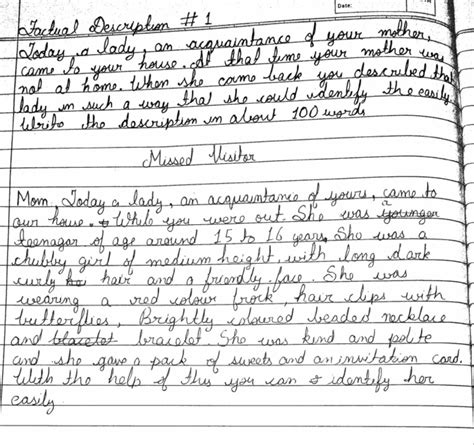 Date:
Factual Description # 1
Today a lady, an acquaintance of your mother,
came to your house. At that time your mother was
not at home. When she came back you described that
lady in such a way that she could identify the easily.
Write the description in about 100 words
Missed Visitor
Mom, Today a lady, an acquaintance of yours, came to
our house. While you were out. She was a younger
teenagar of age around 15 to 16 years, She was a
chubby girl of medium height, with long dark
curly hair and a friendly face. She was
wearing a red colour frock, hair clips with
butterflies, Brightly coloured beaded necklace
and bracelet bracelet. She was kind and polite
and she gave a pack of sweets and an invitation card.
With the help of this you can identify her
easily.